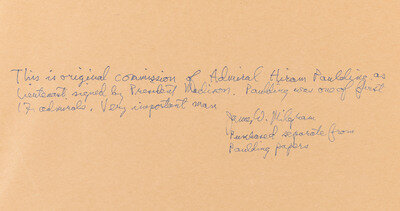 This is original commission of Admiral Hiram Paulding as
Lieutenant signed by President Madison. Paulding was one of first
17 admirals. Very important man
James W. Milgram
Purchased separate from
Paulding papers